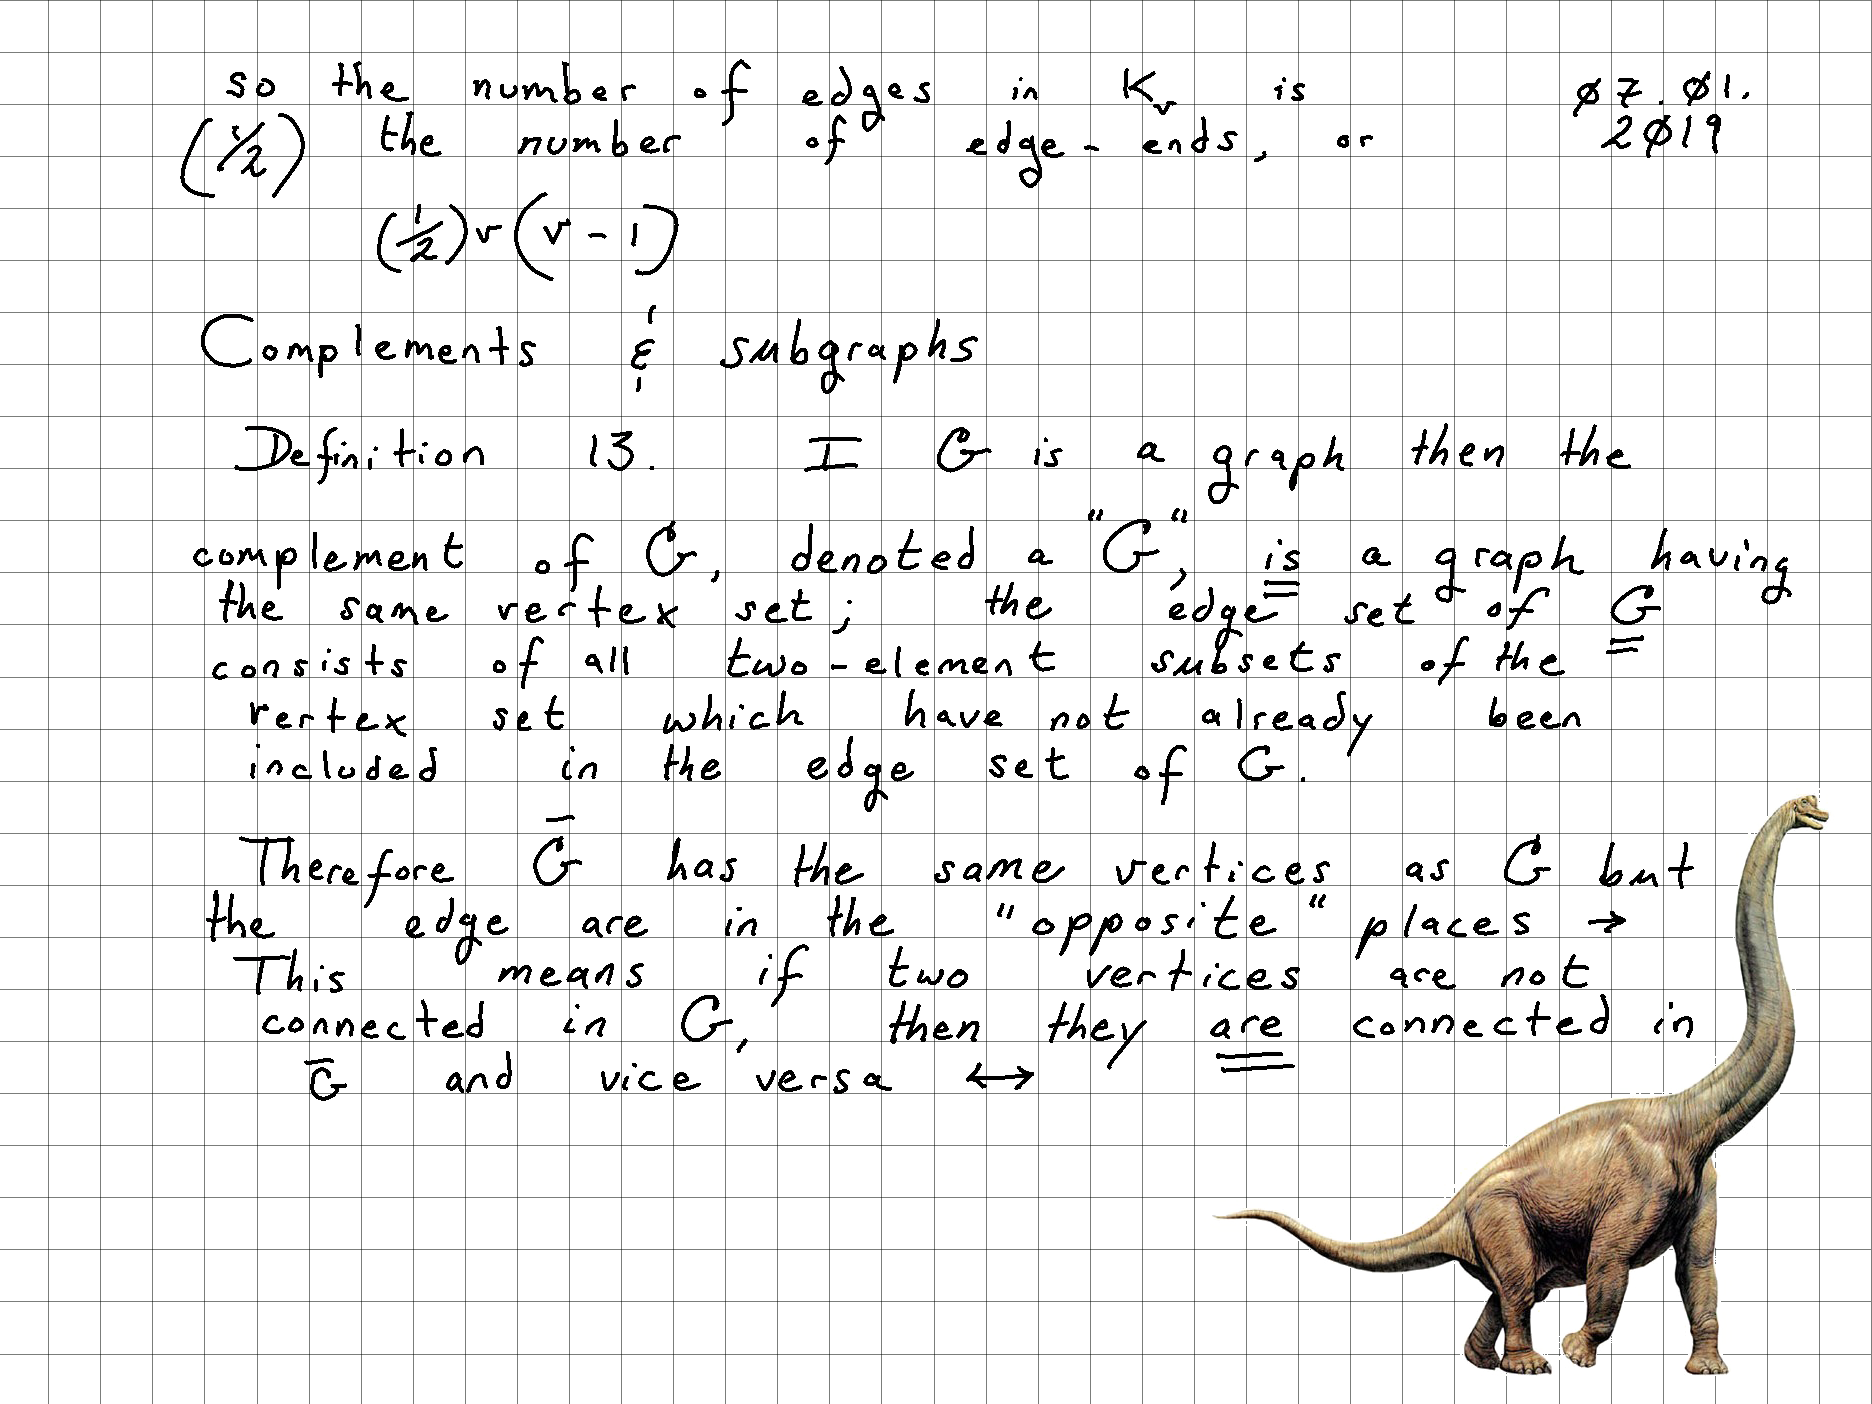 so the number of edges in Kᵥ is
ø7.ø1.
2ø19
(1/2) the number of edge-ends, or
(1/2)v(v-1)
Complements & subgraphs
Definition 13. I G is a graph then the
complement of G, denoted a "G", is a graph having
the same vertex set; the edge set of G
consists of all two-element subsets of the
vertex set which have not already been
included in the edge set of G.
Therefore G̅ has the same vertices as G but
the edge are in the "opposite" places →
This means if two vertices are not
connected in G, then they are connected in
G̅ and vice versa ↔